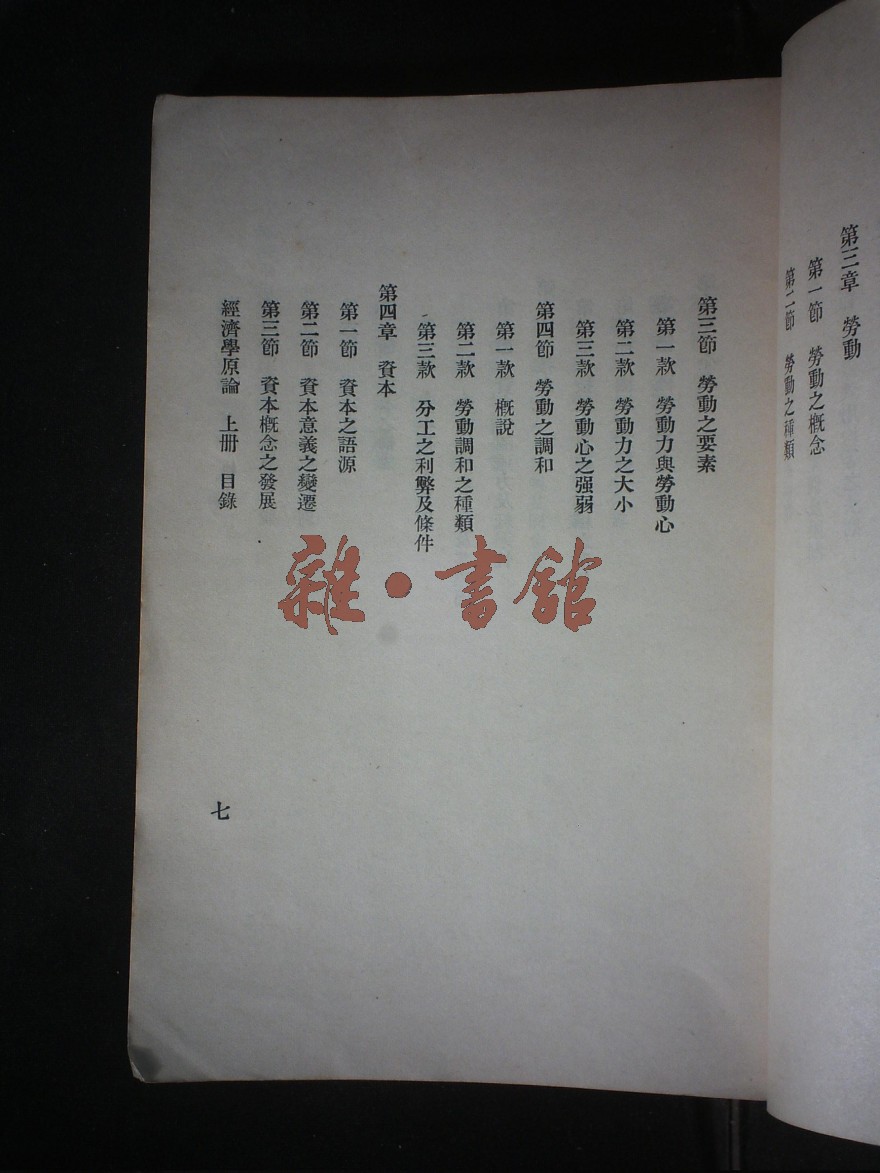 第三章　勞動
第一節　勞動之概念
第二節　勞動之種類
第三節　勞動之要素
第一款　勞動力與勞動心
第二款　勞動力之大小
第三款　勞動心之强弱
第四節　勞動之調和
第一款　概說
第二款　勞動調和之種類
第三款　分工之利弊及條件
第四章　資本
第一節　資本之語源
第二節　資本意義之變遷
第三節　資本概念之發展
經濟學原論　上册　目錄
七
雜·書館